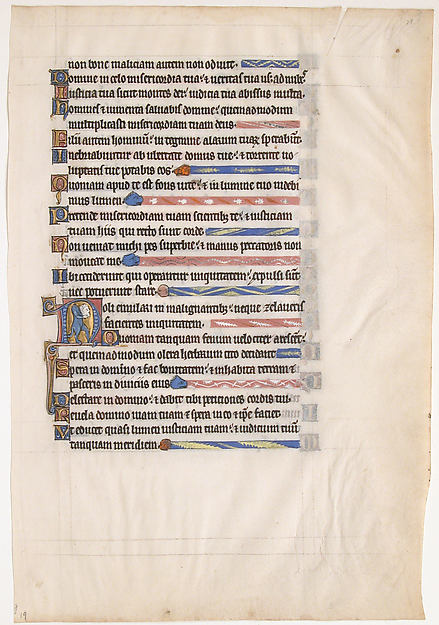 non bone maliciam autem non odiuit.
Domine in celo misericordia tua: & ueritas tua usq; ad nubes
Iusticia tua sicut montes dei: iudicia tua abissus multa.
Homines & iumenta saluabis domine: quemadmodum
multiplicasti misericordiam tuam deus.
Filii autem hominũ: in tegmine alarum tuaꝝ sperabũt.
Inebriabuntur ab ubertate domus tue: & torrente uo
luptatis tue potabis eos.
Quoniam apud te est fons uite: & in lumine tuo uidebi
mus lumen.
Pretende misericordiam tuam scientib; te: & iusticiam
tuam hiis qui recto sunt corde.
Non ueniat michi pes superbie: & manus peccatoris non
moueat me.
Ibi ceciderunt qui operantur iniquitatem: expulsi sũt
nec potuerunt stare.
Noli emulari in malignantib;: neque zelaueris
facientes iniquitatem.
Quoniam tanquam fenum uelociter arescẽt:
et quemadmodum olera herbarum cito decident.
Spera in domino & fac bonitatem: & inhabita terram &
pasceris in diuiciis eius.
Delectare in domino: & dabit tibi peticiones cordis tui.
Reuela domino uiam tuam & spera in eo & ip̃e faciet.
Et educet quasi lumen iusticiam tuam: & iudicium tuũ
tanquam meridiem.
19